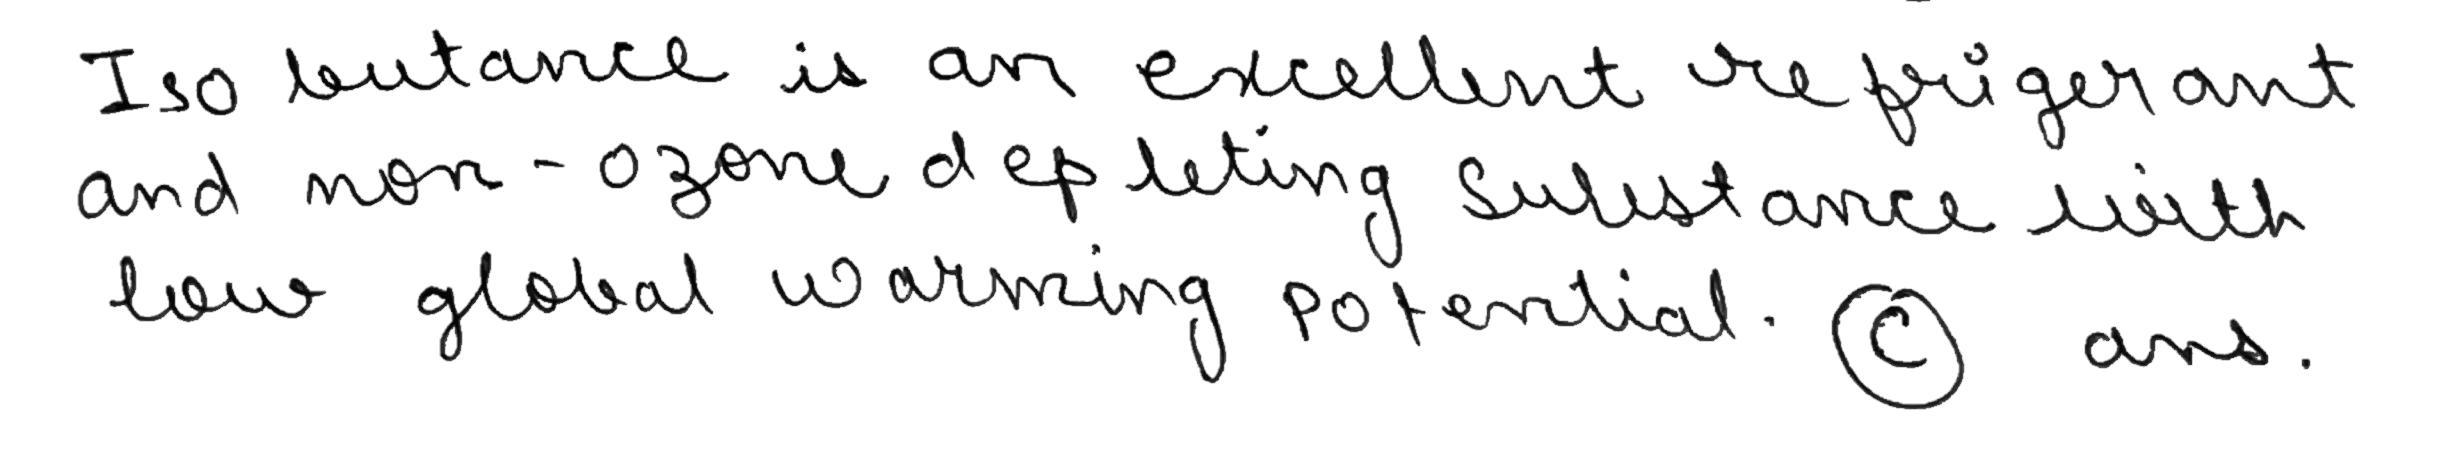 Iso butance is an excellent refrigerant
and non-ozone depleting Substance with
low global warming Potential. Ⓒ ans.